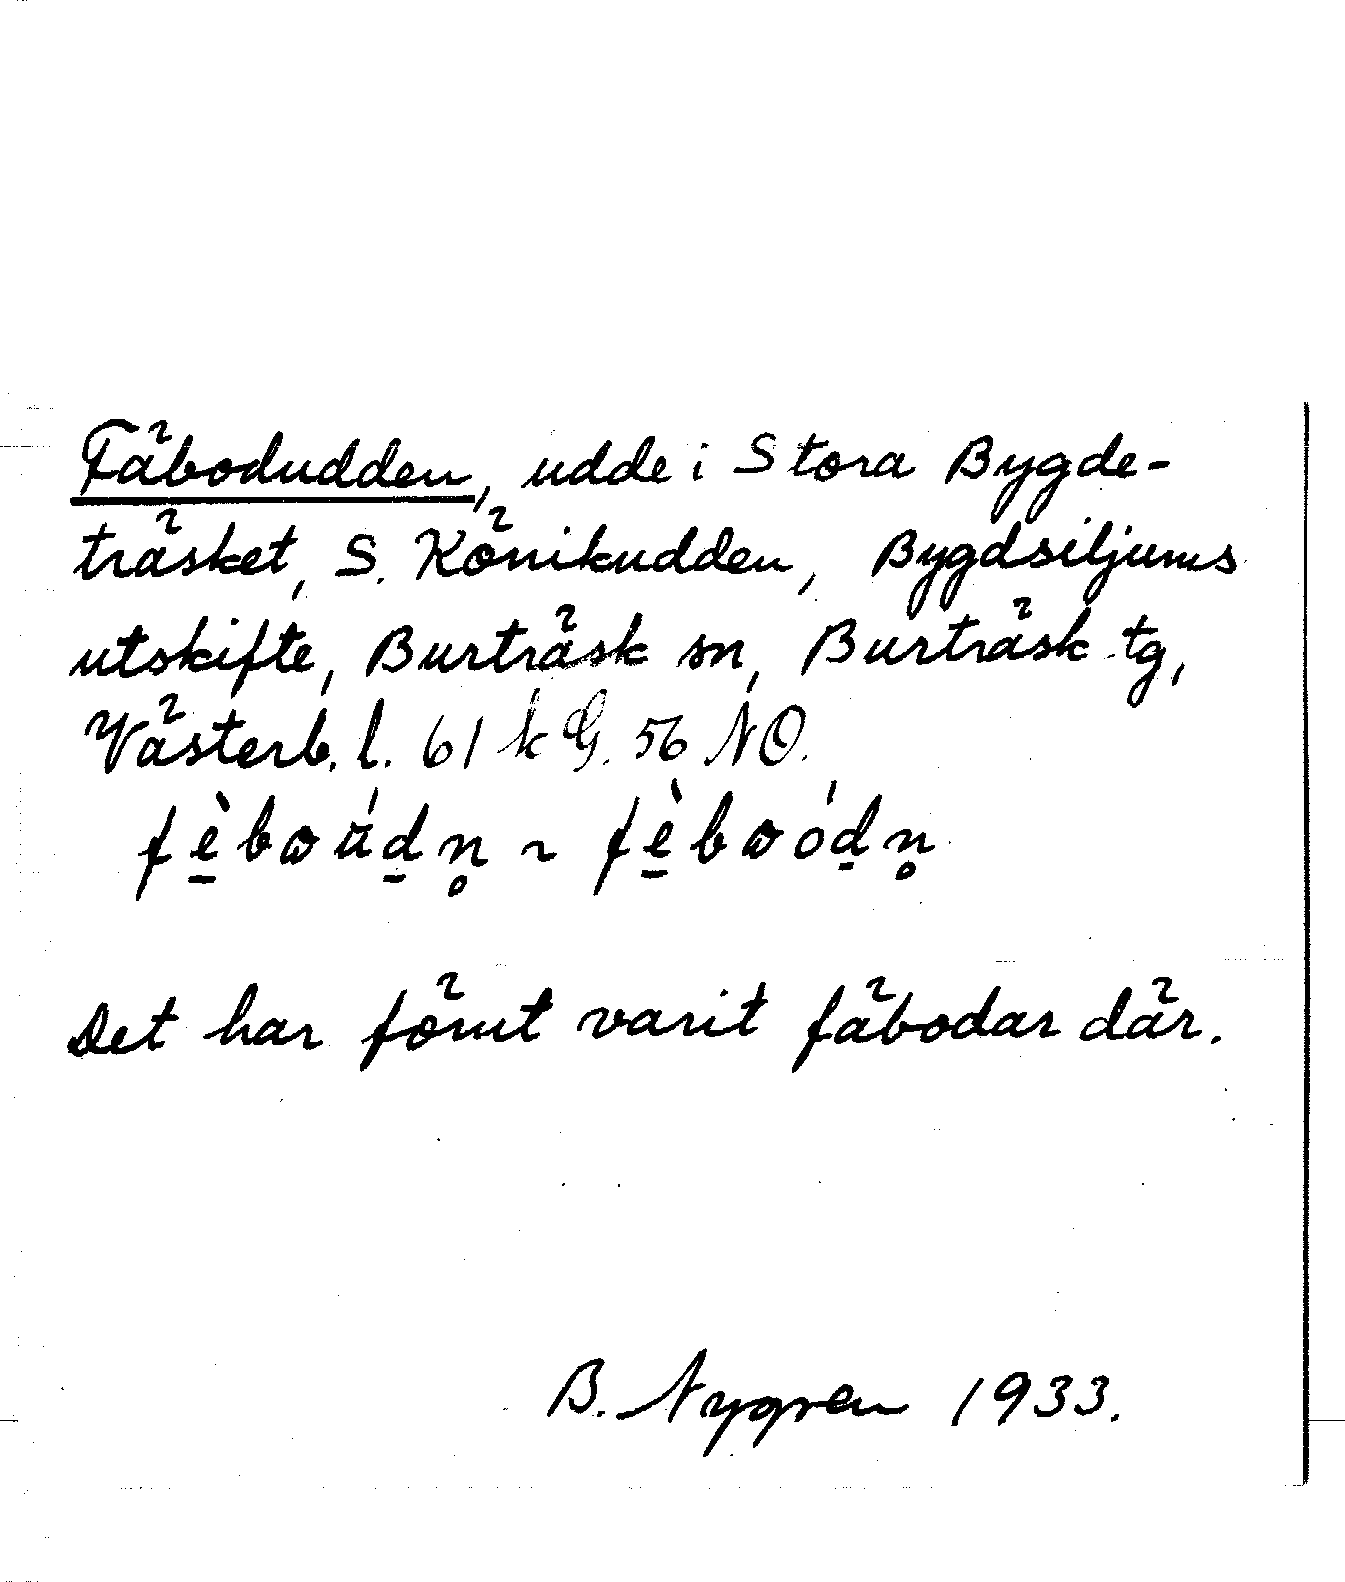 Fäbodudden, udde i Stora Bygde-
träsket, S. Könikudden, Bygdsiljums
utskifte, Burträsk sn, Burträsk tg,
Västerb. l. 61 k G. 56 NO.
fè̱bωúḏn̥ ~ fè̱bωóḏn̥
Det har förut varit fäbodar där.
B. Nygren 1933.